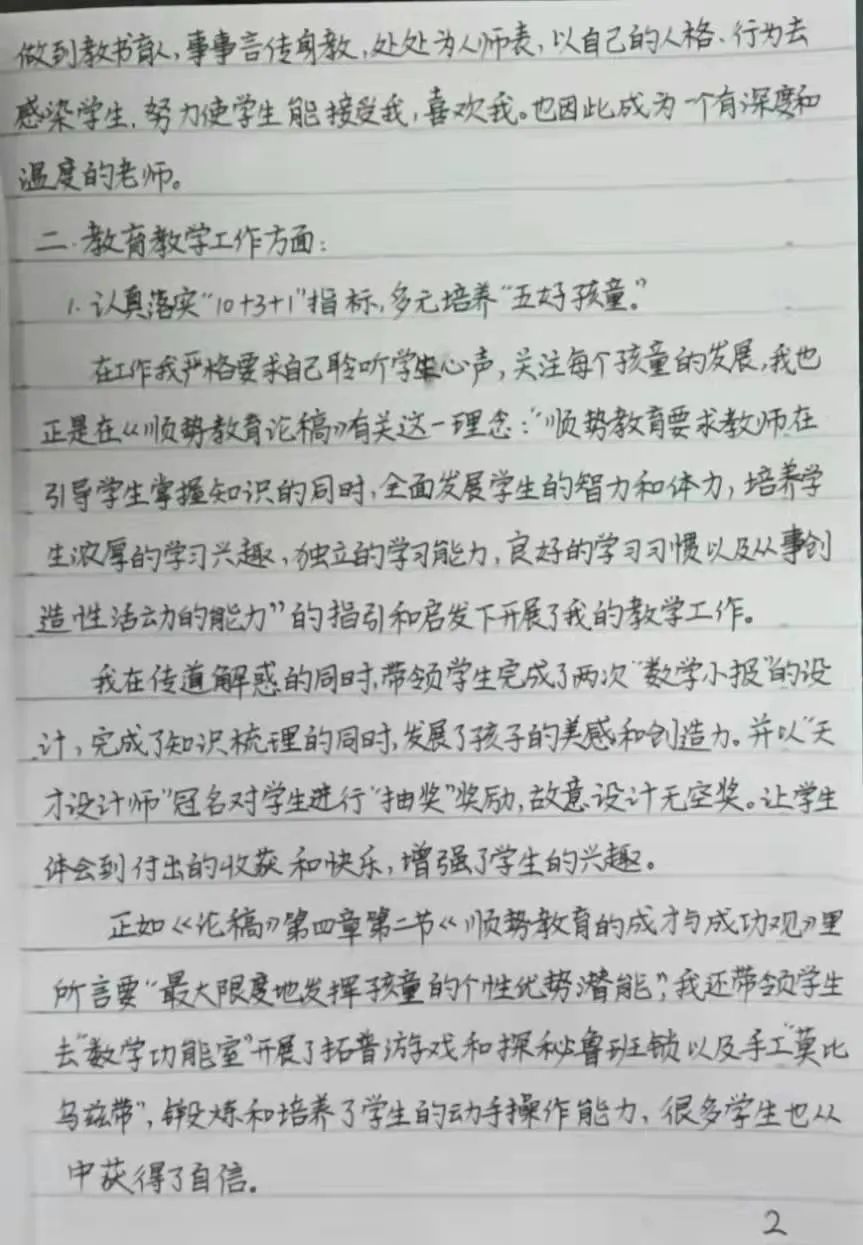 做到教书育人,事事言传身教,处处为人师表,以自己的人格、行为去
感染学生,努力使学生能接受我,喜欢我。也因此成为一个有深度和
温度的老师。
二.教育教学工作方面:
1.认真落实“10+3+1”指标,多元培养“五好孩童。”
在工作我严格要求自己聆听学生心声,关注每个孩童的发展,我也
正是在《顺势教育论稿》有关这一理念:“顺势教育要求教师在
引导学生掌握知识的同时,全面发展学生的智力和体力,培养学
生浓厚的学习兴趣,独立的学习能力,良好的学习习惯以及从事创
造性活动的能力”的指引和启发下开展了我的教学工作。
我在传道解惑的同时,带领学生完成了两次“数学小报”的设
计,完成了知识梳理的同时,发展了孩子的美感和创造力。并以“天
才设计师”冠名对学生进行“抽奖”奖励,故意设计无空奖。让学生
体会到付出的收获和快乐,增强了学生的兴趣。
正如《论稿》第四章第二节《顺势教育的成才与成功观》里
所言要“最大限度地发挥孩童的个性优势潜能”,我还带领学生
去“数学功能室”开展了拓普游戏和探秘鲁班锁以及手工“莫比
乌兹带”,锻炼和培养了学生的动手操作能力,很多学生也从
中获得了自信。
2